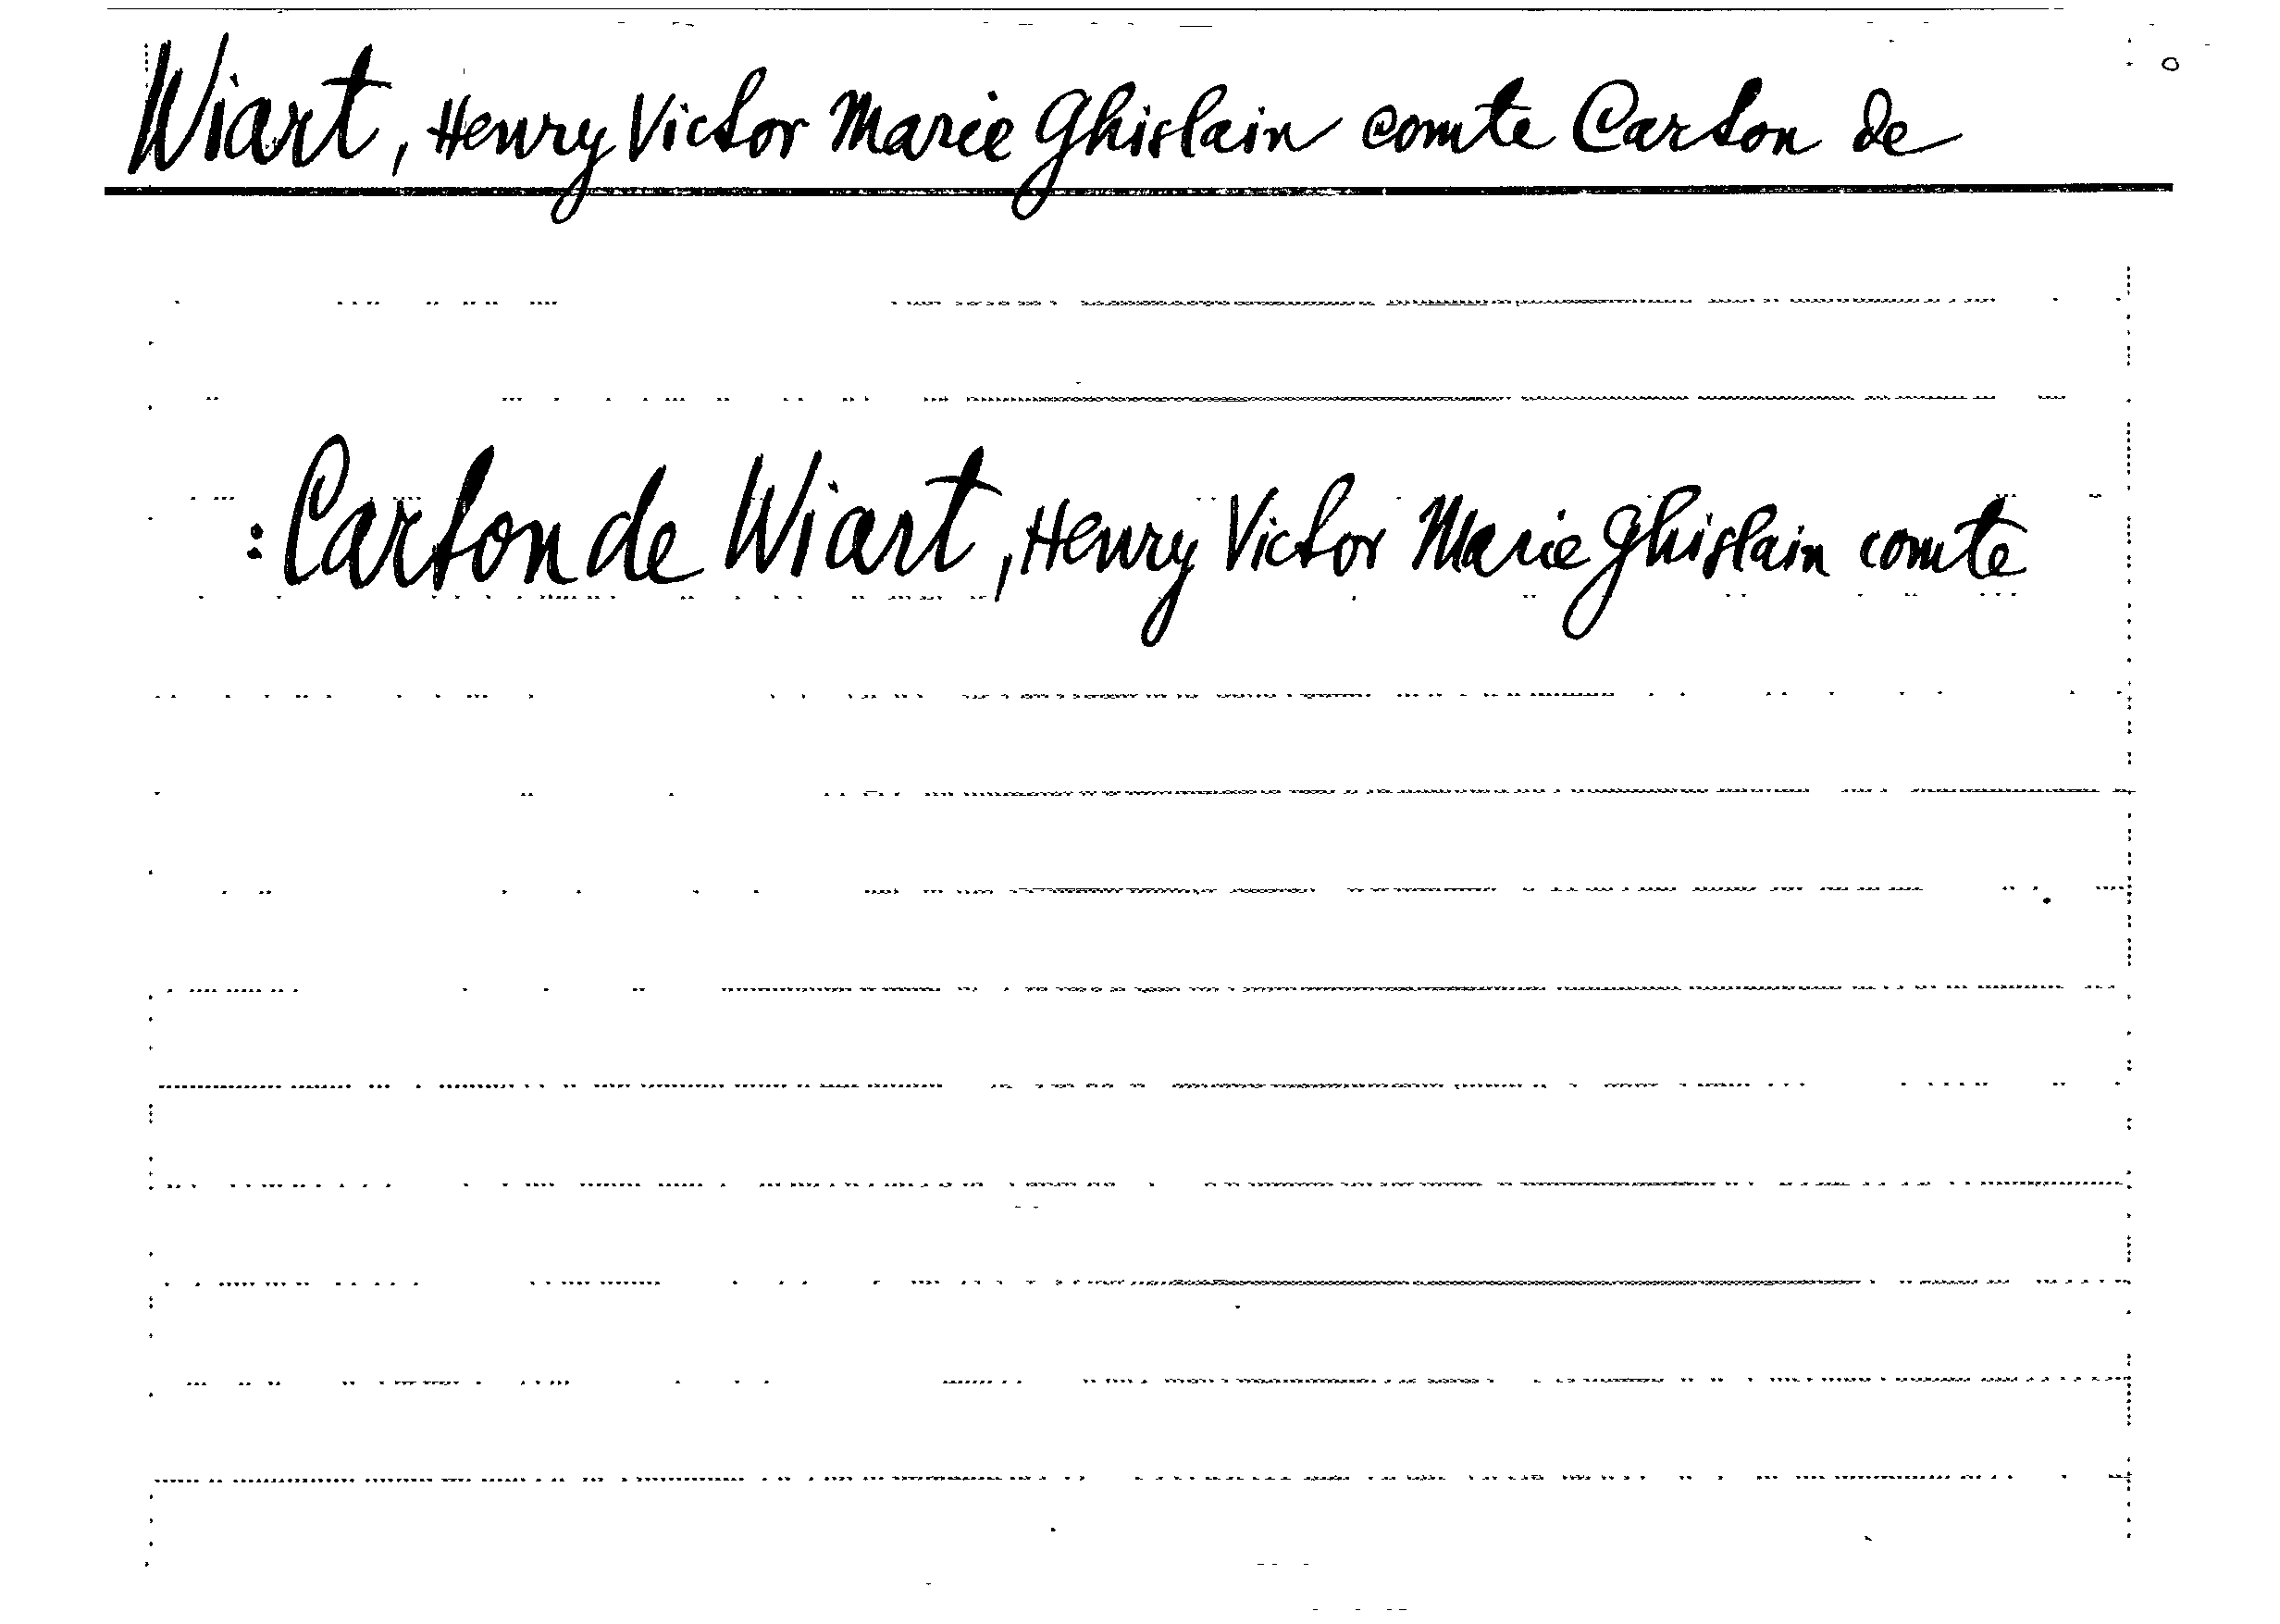 Wiart, Henry Victor Marie Ghislain comte Carton de
: Carton de Wiart, Henry Victor Marie Ghislain comte